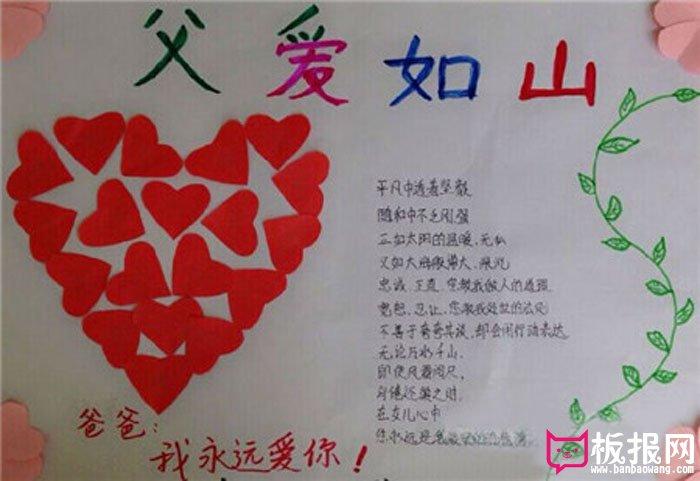 父爱如山
平凡中透着坚毅
随和中不乏刚强
正如太阳的温暖、无私
又如大海般博大、深沉
忠诚、正直、您教我做人的道理
宽恕、忍让、您教我处世的法则
不善于夸夸其谈、却会用行动表达
无论万水千山
即使风霜
之时
在女儿心中
您永远是
爸爸：
我永远爱你！
板报网
www.banbaowang.com